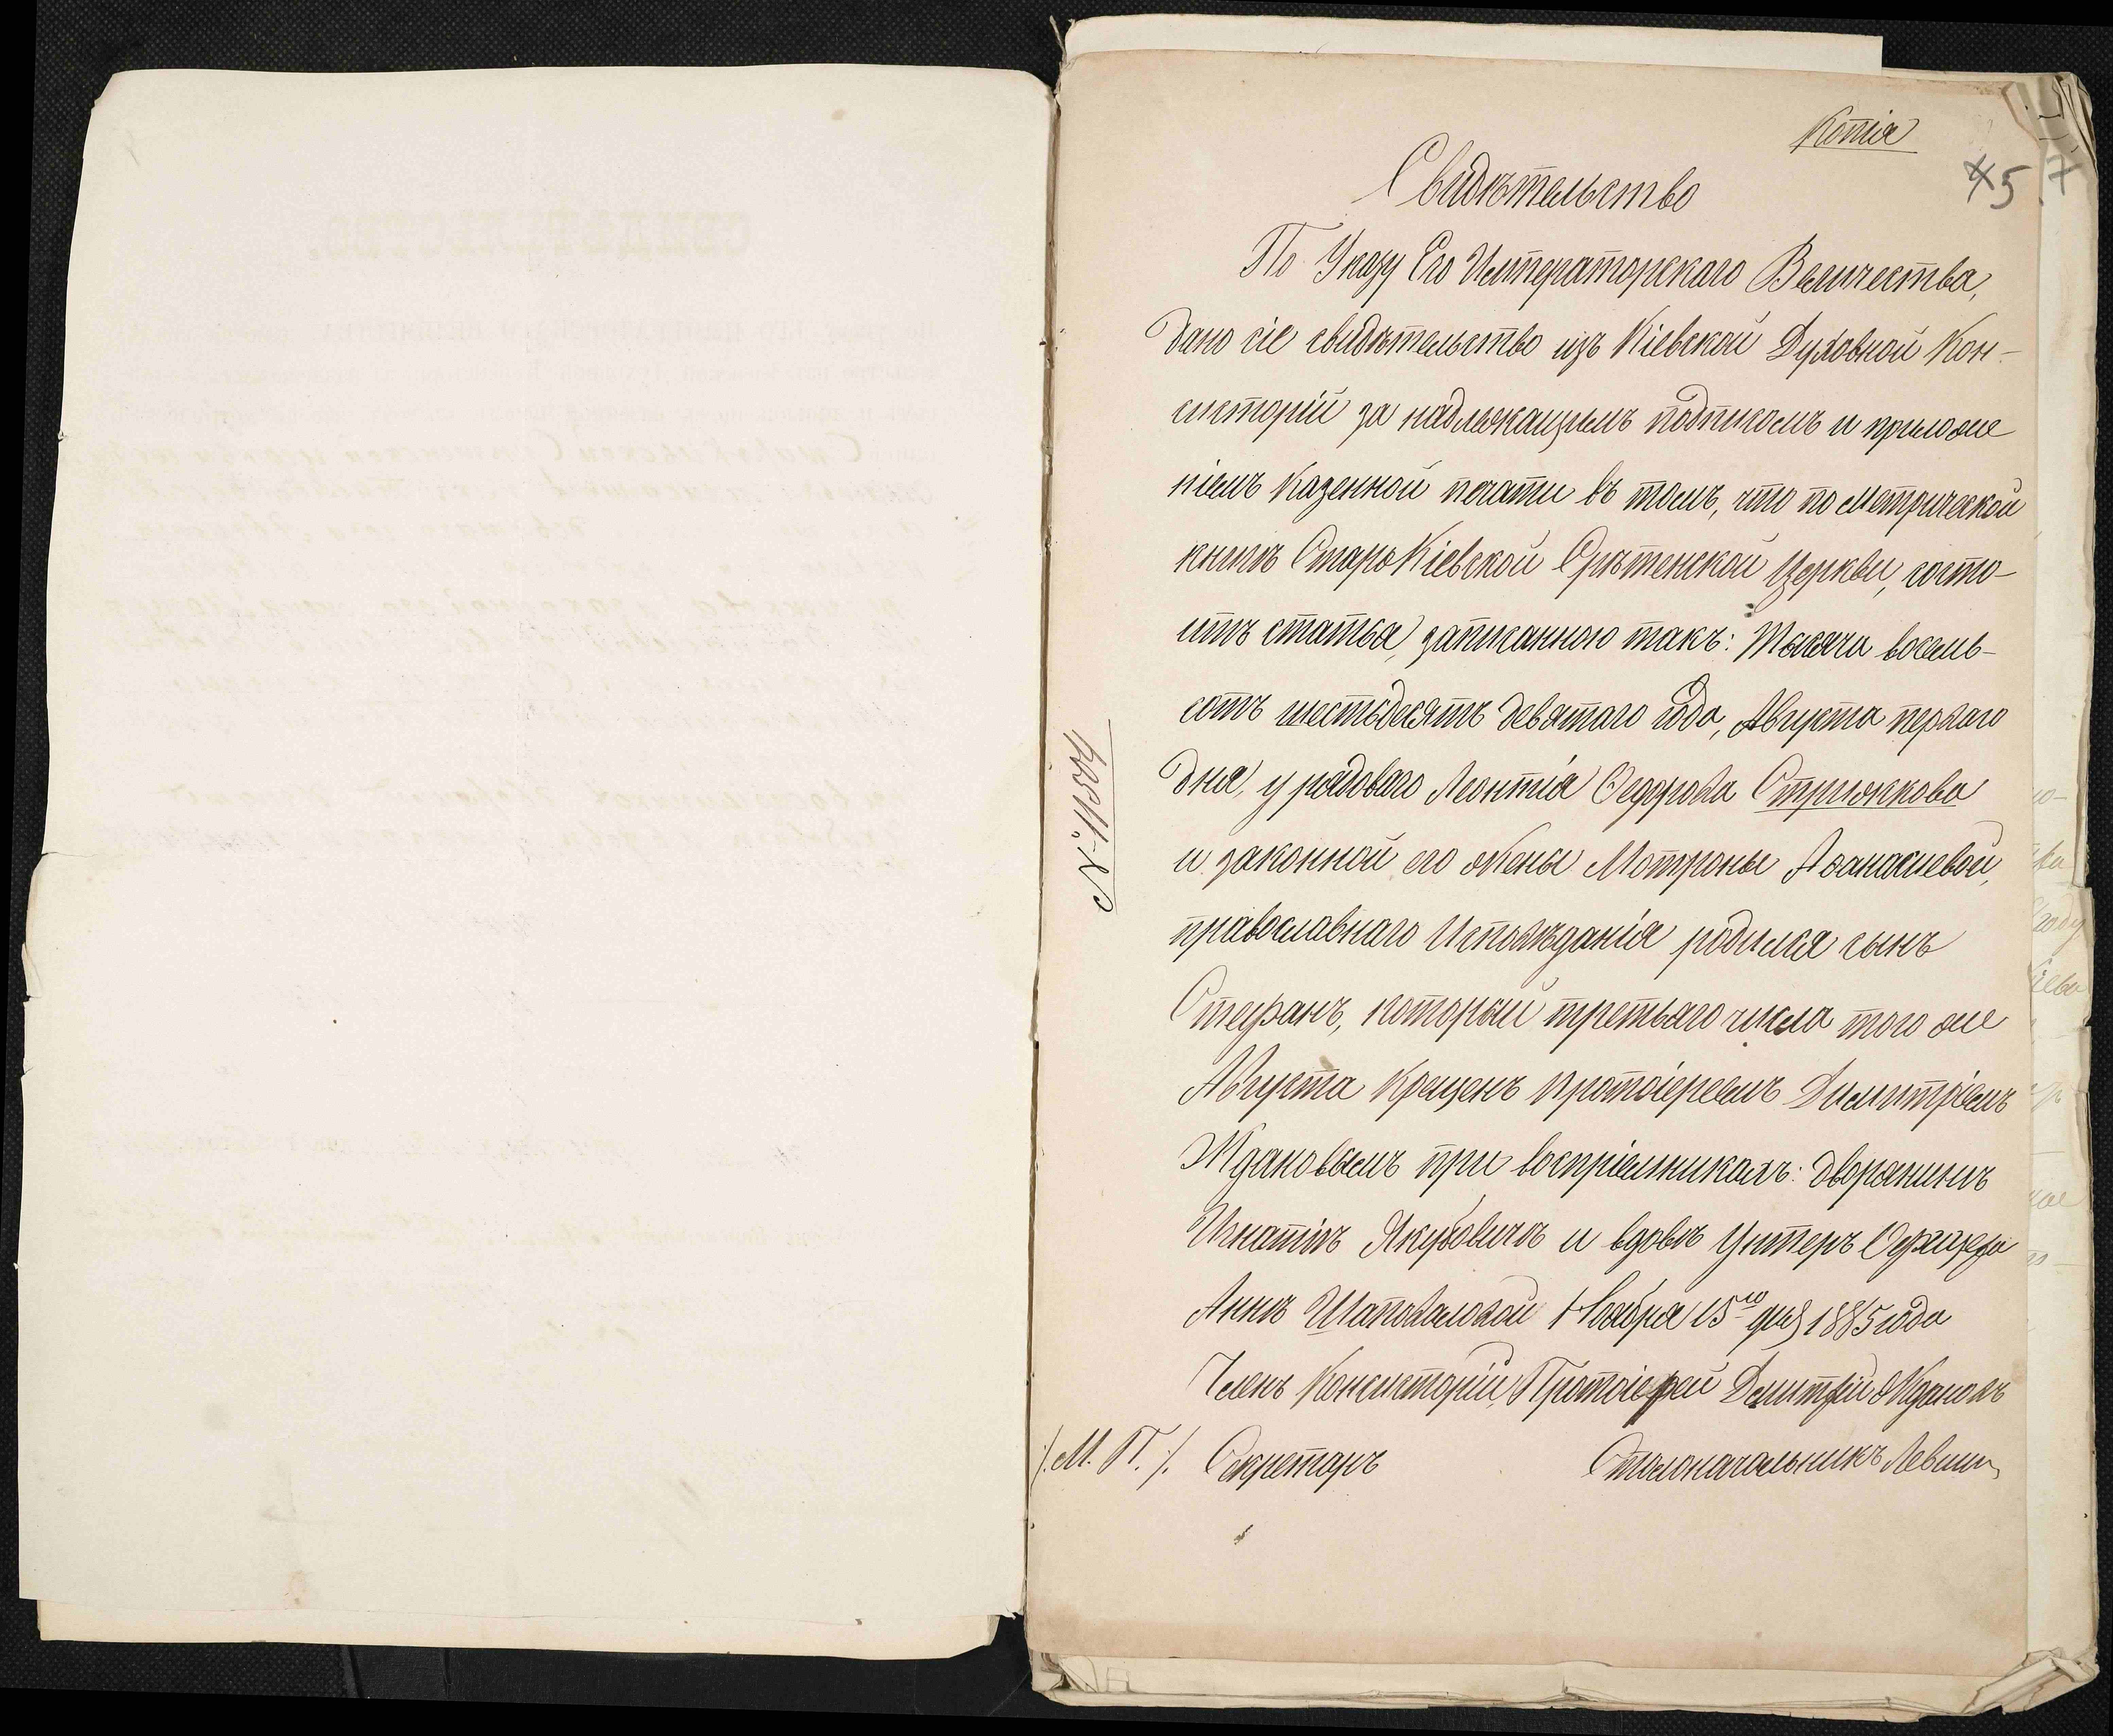 Копія
5
7
Свидѣтельство
По Указу Его Императорскаго Величества,
дано сіе свидѣтельство изъ Кіевской Духовной Кон-
систоріи за надлежащимъ подписомъ и приложе
ніемъ казенной печати въ томъ, что по метрической
книгѣ СтароКіевской Срѣтенской Церкви, состо-
итъ статья, записанною такъ: Тысяча восемь-
сотъ шестьдесятъ девятаго года, Августа перваго
дня, у рядоваго Леонтія Ѳедорова Стрижкова
и законной его жены Мотроны Аѳанасиевой,
православнаго Исповѣданія родился сынъ
Стефанъ, который третьяго числа того же
Августа крещенъ протоіереемъ Димитріемъ
Ждановымъ при воспріемникахъ: дворянинѣ
Игнатіѣ Якубовичѣ и вдовѣ Унтеръ Офицера
Аннѣ Шаповаловой Ноября 15го дня 1885 года
Членъ Консисторіи, Протоіерей Димитрій Ждановъ
/.М. П./. Секретарь Столоначальникъ
№ 11504